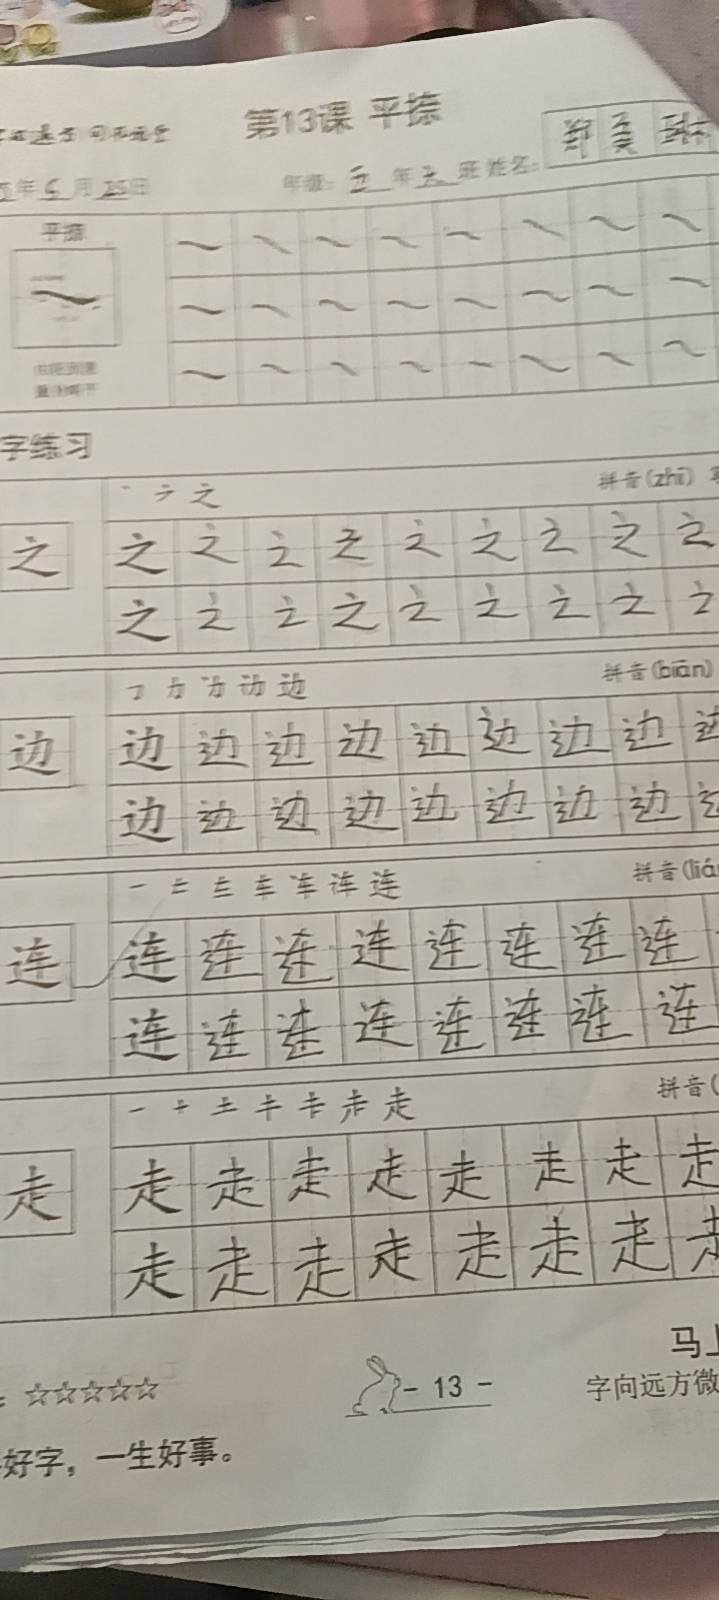 第13课 平捺
年6月25日 年级: 五 年 班 姓名: 郑
平捺
字练习
丶 ㇇ 之 拼音(zhī)
之 之 之 之 之 之 之 之 之 之
之 之 之 之 之 之 之 之 之
㇆ 力 边 拼音(biān)
边 边 边 边 边 边 边 边 边 边
边 边 边 边 边 边 边 边 边
一 车 连 拼音(liá
连 连 连 连 连 连 连 连 连
连 连 连 连 连 连 连 连
一 十 土 走 拼音(
走 走 走 走 走 走 走 走 走
走 走 走 走 走 走 走 走
马上
: ☆☆☆☆☆ - 13 - 字向远方微
好字，一生好事。